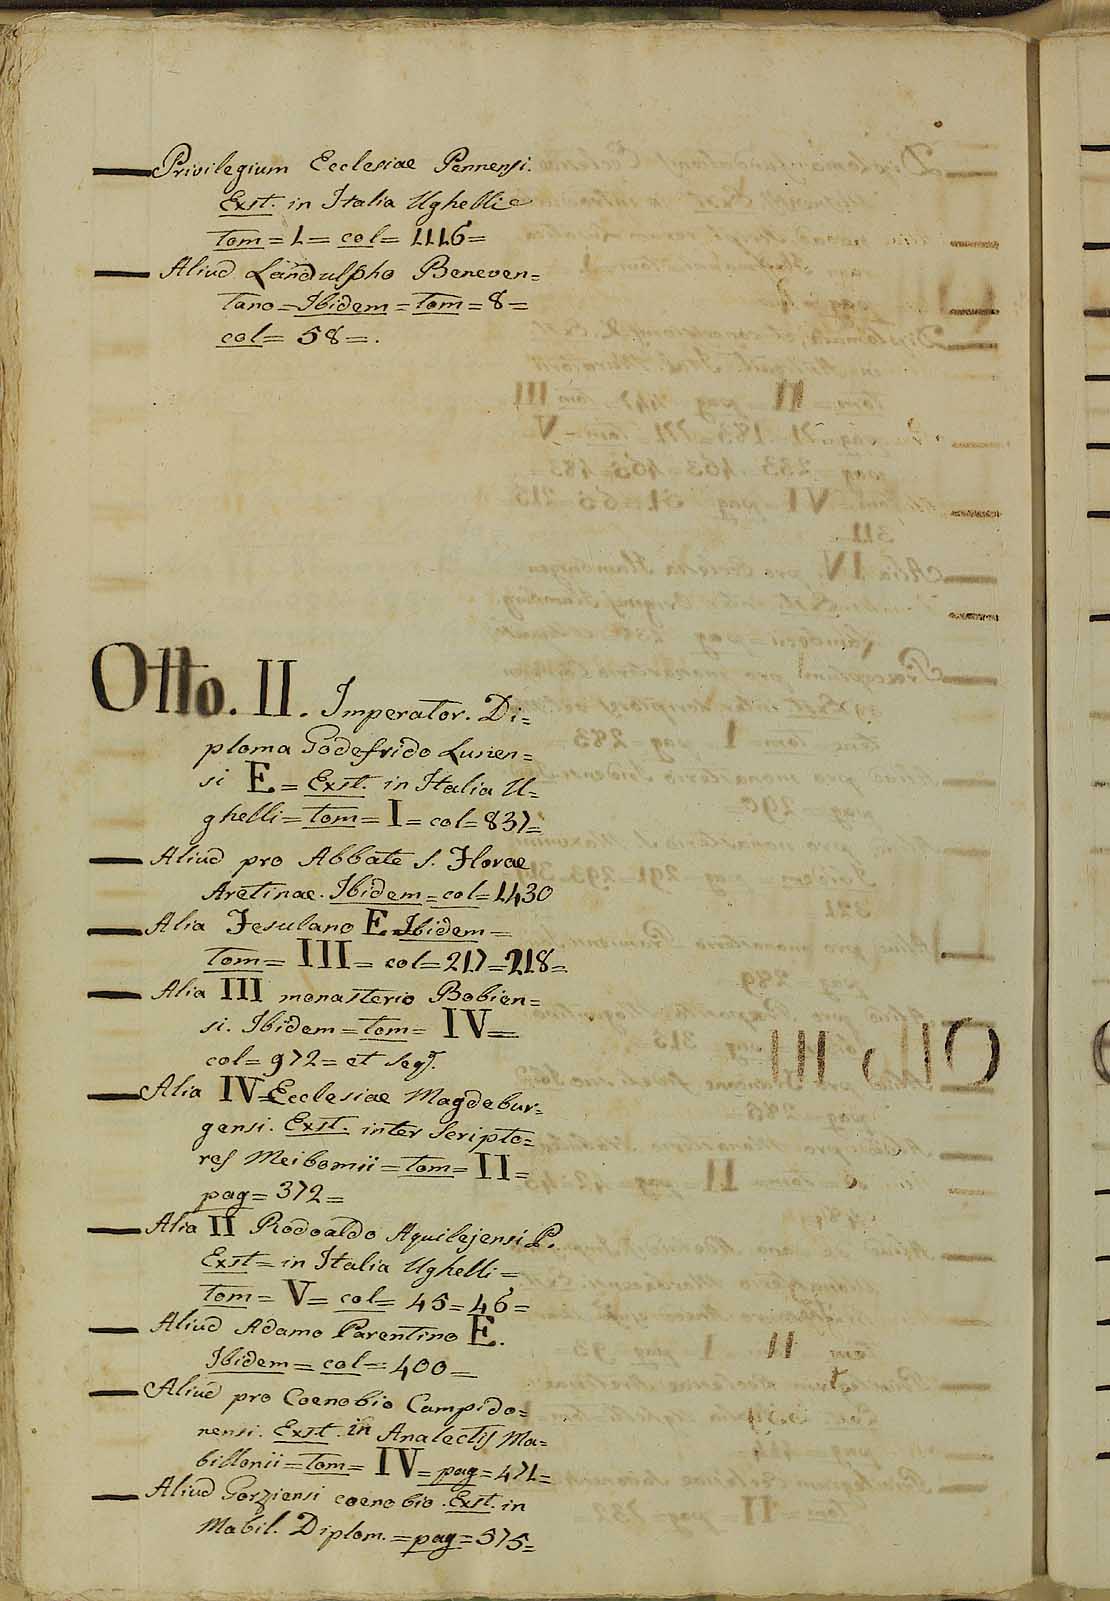 — Privilegium Ecclesiae Pennensi.
Exst. in Italia Ughellie
tom = 1 = col = 1116 =
— Aliud Landulpho Beneven=
tano = Ibidem = tom = 8 =
col = 58 = .
Otto. II. Imperator. Di=
ploma Godefrido Lunen=
si E = Exst. in Italia U=
ghelli = tom = I = col = 837 =
— Aliud pro Abbate S. Florae
Aretinae. Ibidem = col = 1430
— Alia Fesulano E. Ibidem =
tom = III = col = 217 = 218 =
— Alia III monasterio Bobien=
si. Ibidem = tom = IV =
col = 972 = et seq.
— Alia IV = Ecclesiae Magdebur=
gensi. Exst. inter Scripto=
res Meibomii = tom = II =
pag = 372 =
— Alia II Rodoaldo Aquilejensi P.
Exst = in Italia Ughelli =
tom = V = col = 45 = 46 =
— Aliud Adamo Parentino E.
Ibidem = col = 400 =
— Aliud pro Coenobio Campido=
nensi. Exst. in Analectis Ma=
billonii = tom = IV = pag = 471 =
— Aliud Gorziensi coenobio. Exst. in
Mabil. Diplom. = pag = 575 =